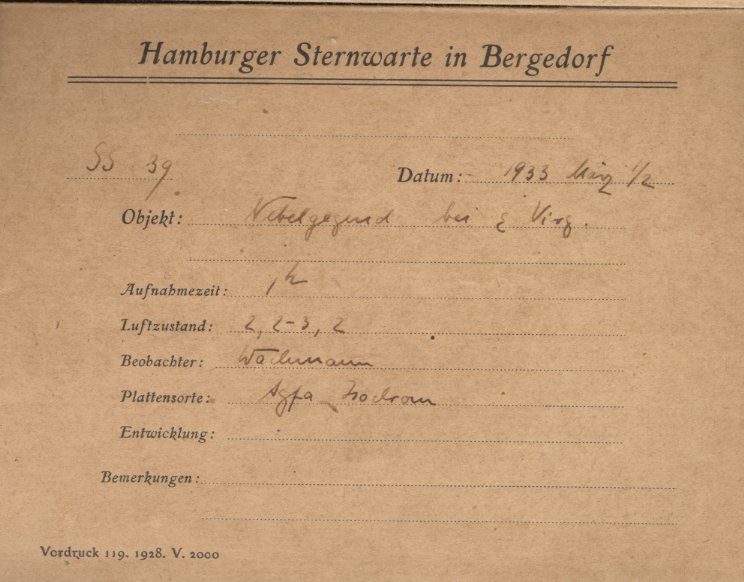 Hamburger Sternwarte in Bergedorf
SS 39 Datum: 1933 März 1/2
Objekt: Nebelgegend bei ε Virg.
Aufnahmezeit: 1h
Luftzustand: 2, 2-3, 2
Beobachter: Wachmann
Plattensorte: Agfa Isochrom
Entwicklung:
Bemerkungen:
Vordruck 119. 1928. V. 2000